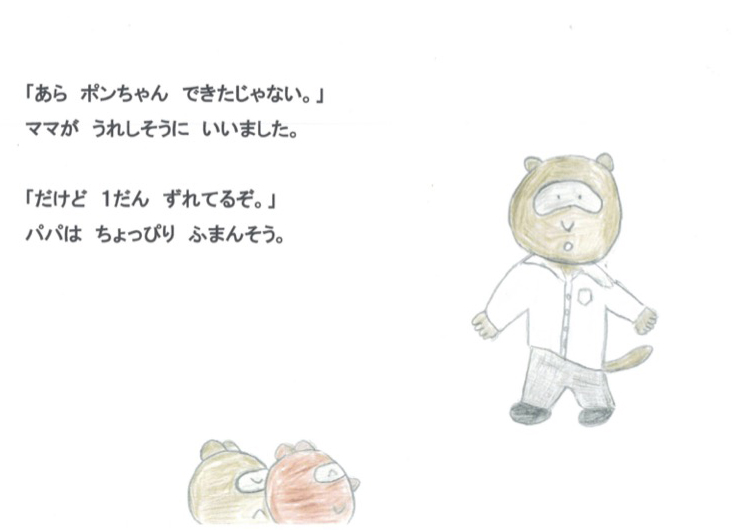 「あら　ポンちゃん　できたじゃない。」
ママが　うれしそうに　いいました。
「だけど　1だん　ずれてるぞ。」
パパは　ちょっぴり　ふまんそう。